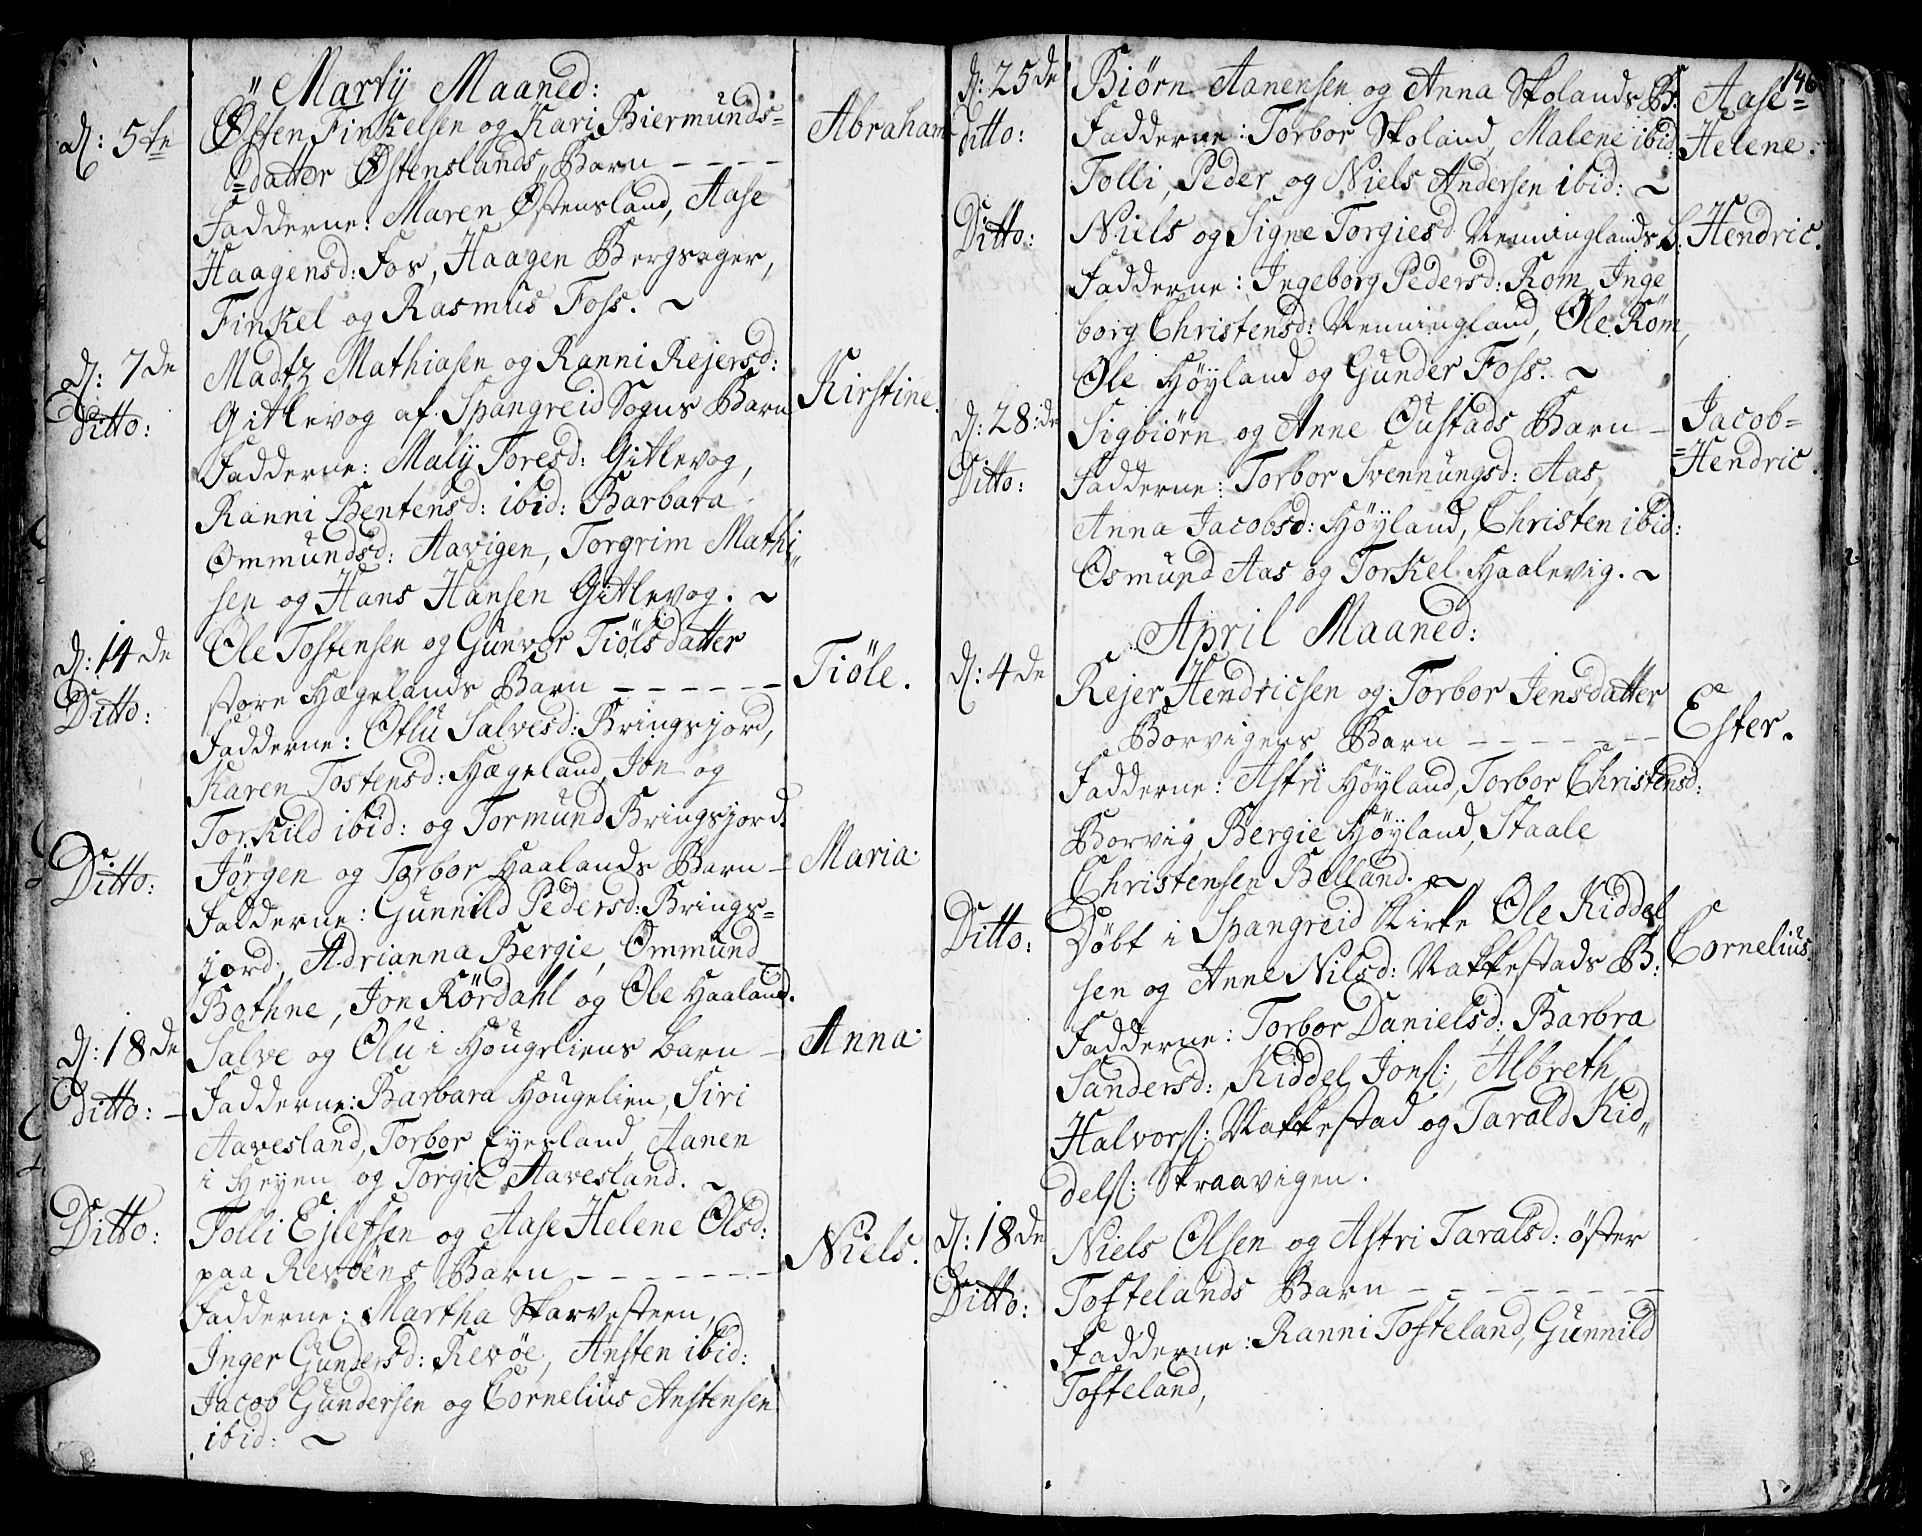 Martij Maaned:
d: 5te
Østen Finkelsen og Kari Biermunds=
=datter Østenslands Barn - - - -
Abraham
Fadderne: Maren Østensland, Aase
Haagensd: Fos, Haagen Bergsager,
Finkel og Rasmus Foss. ~
d: 7de
Ditto:
Madtz Mathiasen og Ranni Rejersd:
Gitlevog af Spangreid Sogns Barn
Kirstine.
Fadderne: Malij Toresd: Gitlevog,
Ranni Bentensd: ibid: Barbara
Ommundsd: Aavigen, Torgrim Mathi„
sen og Hans Hansen Gitlevog. ~
d: 14de
Ditto:
Ole Tostensen og Gunvor Tiölsdatter
store Hægelands Barn - - - - - -
Tiöle.
Fadderne: Otlu Salvesd: Bringsjord,
Karen Tostensd: Hægeland, Jon og
Torkild ibid: og Tormund Bringsjord.
Ditto:
Jörgen og Torbor Haalands Barn -
Maria.
Fadderne: Gunnild Pedersd: Brings=
jord, Adrianna Bergie, Ommund
Bothne, Jon Rördahl og Ole Haaland.
d: 18de
Ditto: -
Salve og Olu i Hougeliens barn -
Anna.
Fadderne: Barbara Hougelien, Siri
Aavesland, Torbor Eyesland, Aanen
i Heyen og Torgie Aavesland. ~
Ditto:
Tolli Ejlefsen og Aase Helene Olsd:
paa Revöens Barn - - - - - - -
Niels.
Fadderne: Martha Skarvesteen,
Inger Gundersd: Revöe, Ansten ibid:
Jacob Gundersen og Cornelius Anstensen
ibid: ~
146
d: 25de
Ditto:
Biørn Aanensen og Anna Skolands B:
Aase=
Helene.
Fadderne: Torbor Skoland, Malene ibid:
Tolli, Peder og Niels Andersen ibid: ~
Ditto:
Niels og Signe Torgiesd Venninglands B.
Hendric.
Fadderne: Ingeborg Pedersd: Rom, Inge
borg Christensd: Venningland, Ole Rom,
Ole Höyland og Gunder Foss. ~
d: 28:de
Ditto:
Sigbiörn og Anne Oustads Barn -
Jacob=
=Hendric.
Fadderne: Torbor Svennungsd: Aas,
Anna Jacobsd: Höyland, Christen ibid:
Osmund Aas og Torkel Haalevig. ~
April Maaned:
d: 4de
Rejer Hendricsen og Torbor Jensdatter
Borvigens Barn - - - - - - -
Ester.
Fadderne: Astri Höyland, Torbor Christensd:
Borvig, Bergie Höyland, Staale
Christensen Belland. ~
Ditto:
Döbt i Spangreid Kirke Ole Kiddel
sen og Anne Nilsd: Vakkestads B:
Cornelius.
Fadderne: Torbor Danielsd: Barbra
Sandersd: Kiddel Jons:, Albreth
Halvors: Vakkestad og Tarald Kid„
dels: Skraavigen.
d: 18de
Ditto:
Niels Olsen og Astri Taralsd: öster
Toftelands Barn - - - - - - - -
Fadderne: Ranni Tofteland, Gunnild
Tofteland,